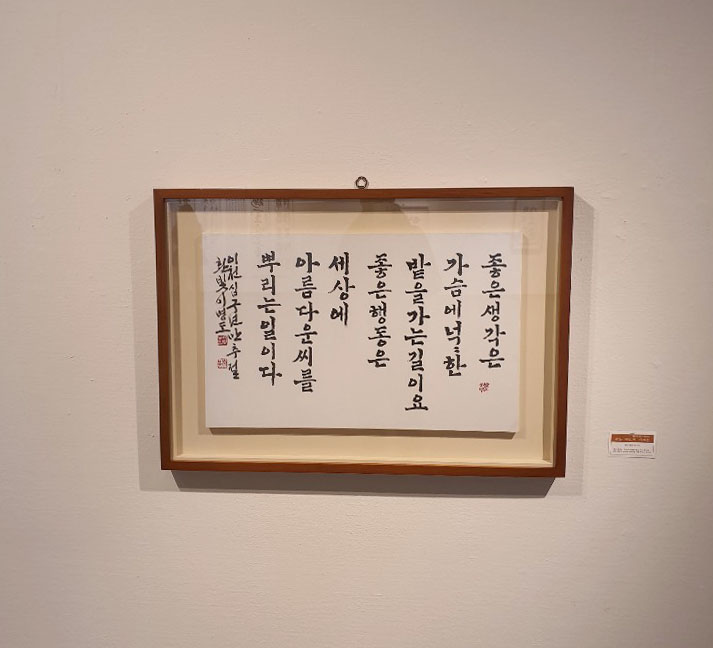 좋은생각은
가슴에넉〻한
밭을가는길이요
좋은행동은
세상에
아름다운씨를
뿌리는일이다
이천십구년만추절
한빛이명도